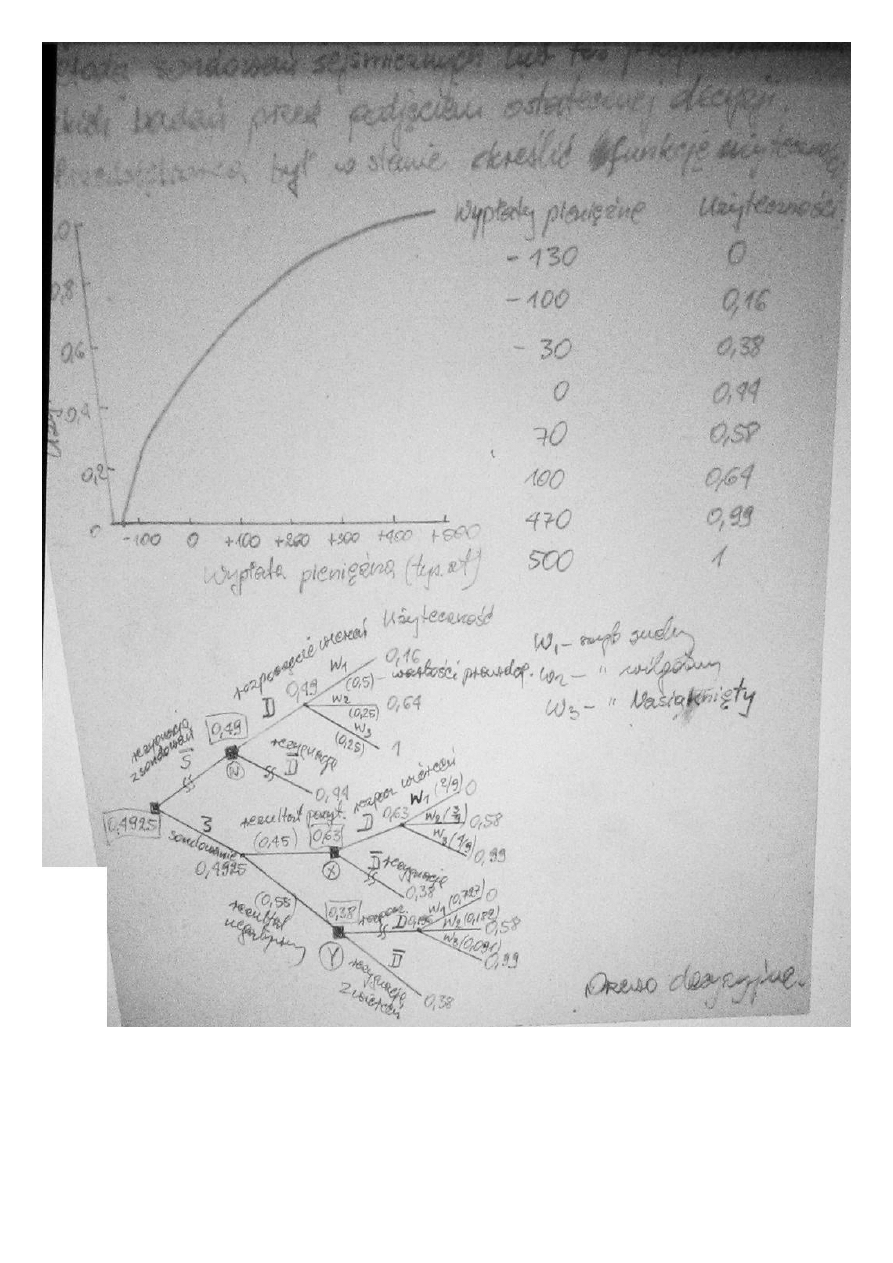 sondowań sejsmicznych lub też
badań przed podjęciem ostatecznej decyzji.
był w stanie określić funkcję użyteczności
Wypłaty pieniężne Użyteczności
- 130 0
- 100 0,16
- 30 0,38
0 0,44
70 0,58
100 0,64
470 0,99
500 1
0,8
0,6
0,4
0,2
0
-100 0 +100 +200 +300 +400 +500
Wypłata pieniężna (tys. zł)
Użyteczność
rozpoczęcie wierceń
W1 0,16
(0,5) - wartości prawdop.
0,49
D
W2
(0,25) 0,64
W3
(0,25) 1
W1 - szyb suchy
W2 - " wilgotny
W3 - " Nasiąknięty
rezygnacja
z sondowań
S
0,49
N
rezygnacja
D
0,44
0,4925
S
sondowanie
0,4925
rezultat pozyt.
(0,45)
0,63
X
rozpocz. wierceń
D 0,63
W1 (2/9) 0
W2 0,58
W3 (4/9) 0,99
D rezygnacja
0,38
(0,55)
rezultat
negatywny
0,38
Y
rozpocz.
D
W1 (0,727) 0
W2 (0,182) 0,58
W3 (0,091) 0,99
D
rezygnacja
z wierceń
0,38
Drzewo decyzyjne.